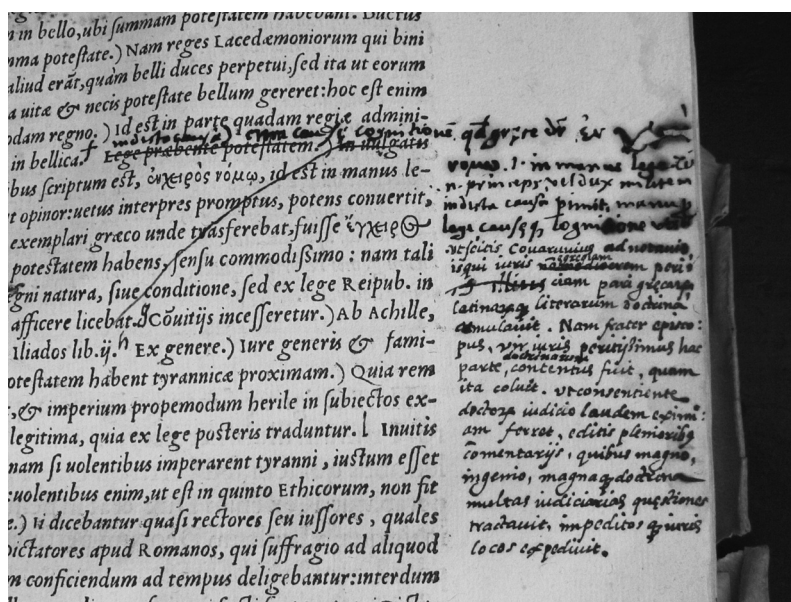 in bello,ubi ſummam poteſtatem habebant. Ductus
poteſtate.) Nam reges Lacedæmoniorum qui bini
aliud erāt,quàm belli duces perpetui,ſed ita ut eorum
uitæ & necis poteſtate bellum gereret:hoc eſt enim
regno. ) Id eſt in parte quadam regiæ admini-
indicta causa)
in bellica. Lege præbente poteſtatem.) in uulgatis
ſcriptum eſt, ἐν χειρὸς νόμῳ, id eſt in manus le-
opinor:uetus interpres promptus, potens conuertit,
exemplari græco unde trāſferebat,fuiſſe ἔγχειρος
poteſtatem habens, ſenſu commodiſsimo : nam tali
natura, ſiue conditione, ſed ex lege Reipub. in
afficere licebat. Cōuitijs inceſſeretur.) Ab Achille,
Iliados lib.ij. Ex genere.) Iure generis & fami-
poteſtatem habent tyrannicæ proximam.) Quia rem
,& imperium propemodum herile in ſubiectos ex-
legitima, quia ex lege poſteris traduntur. Inuitis
nam ſi uolentibus imperarent tyranni , iuſtum eſſet
:uolentibus enim,ut eſt in quinto Ethicorum, non fit
.) Ii dicebantur quaſi rectores ſeu iuſſores , quales
Dictatores apud Romanos, qui ſuffragio ad aliquod
conficiendum ad tempus deligebantur:interdum
in manus lege
princeps vel dux militem
indicta causa punit, manu
lege causæ cognitione
vt scitis Couaruuius adnotauit
isqui iuris peri
pari græcarū
latinarūq literarum doctrina
æmulauit. Nam frater episco:
pus, vir iuris peritissimus hac
doctrinarum
parte, contentus fuit, quam
ita coluit. vt consentiente
doctorū iudicio laudem eximi:
am ferret, editis plenioribq
cōmentarijs, quibus magno,
ingenio, magnaq doctrina
multas iudiciarias quæstiones
tractauit, impeditosq iuris
locos expediuit.